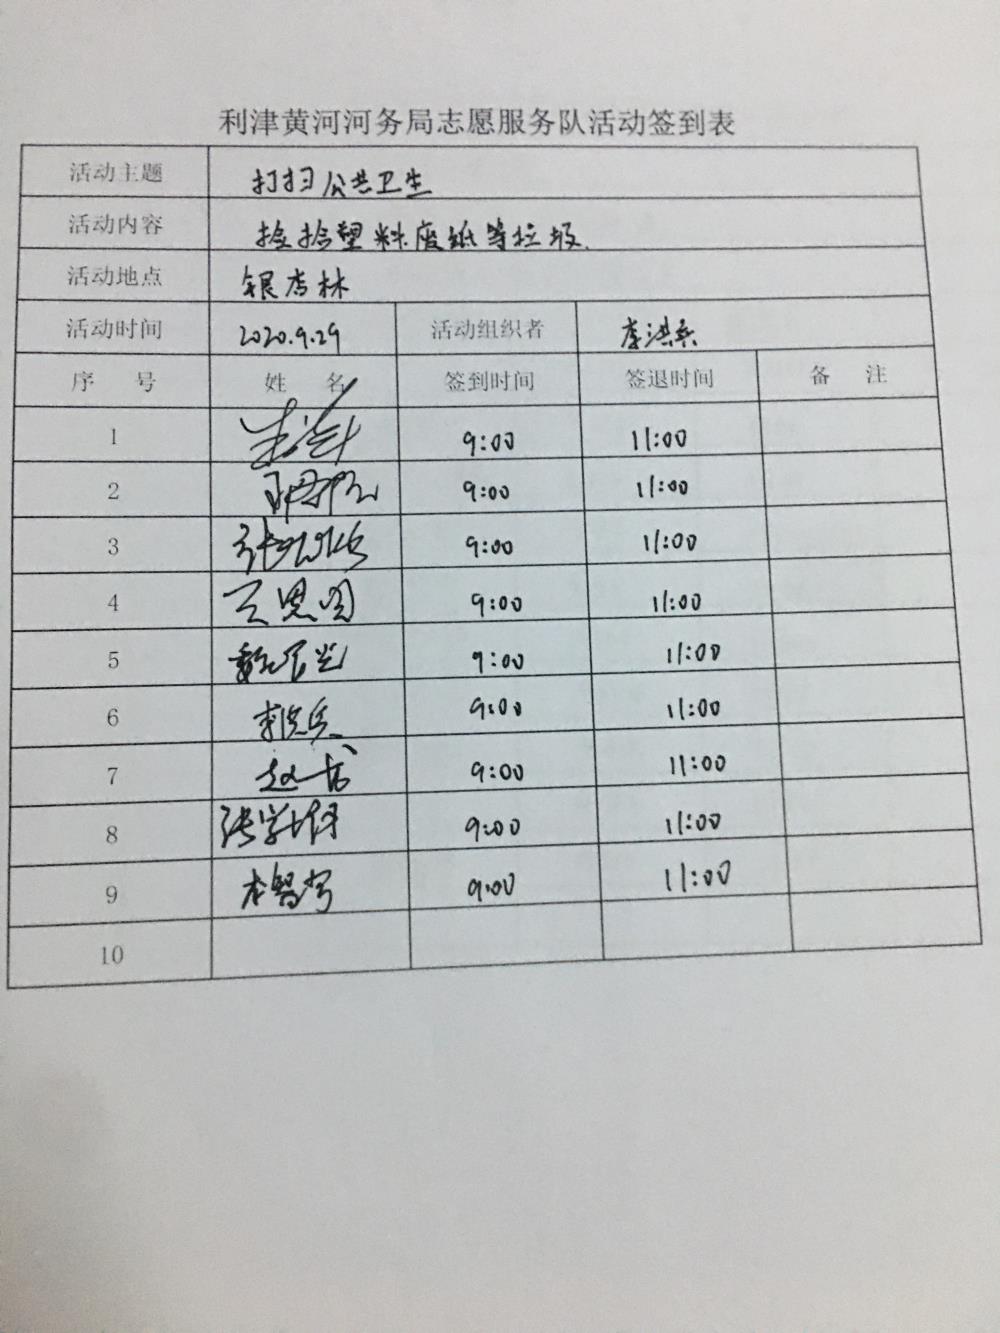 利津黄河河务局志愿服务队活动签到表
活动主题 打扫公共卫生
活动内容 捡拾塑料废纸等垃圾.
活动地点 银杏林
活动时间 2020.9.29 活动组织者 李洪兵
序 号 姓 名 签到时间 签退时间 备 注
1 9:00 11:00
2 9:00 11:00
3 9:00 11:00
4 王恩国 9:00 11:00
5 9:00 11:00
6 李洪兵 9:00 11:00
7 9:00 11:00
8 9:00 11:00
9 9:00 11:00
10